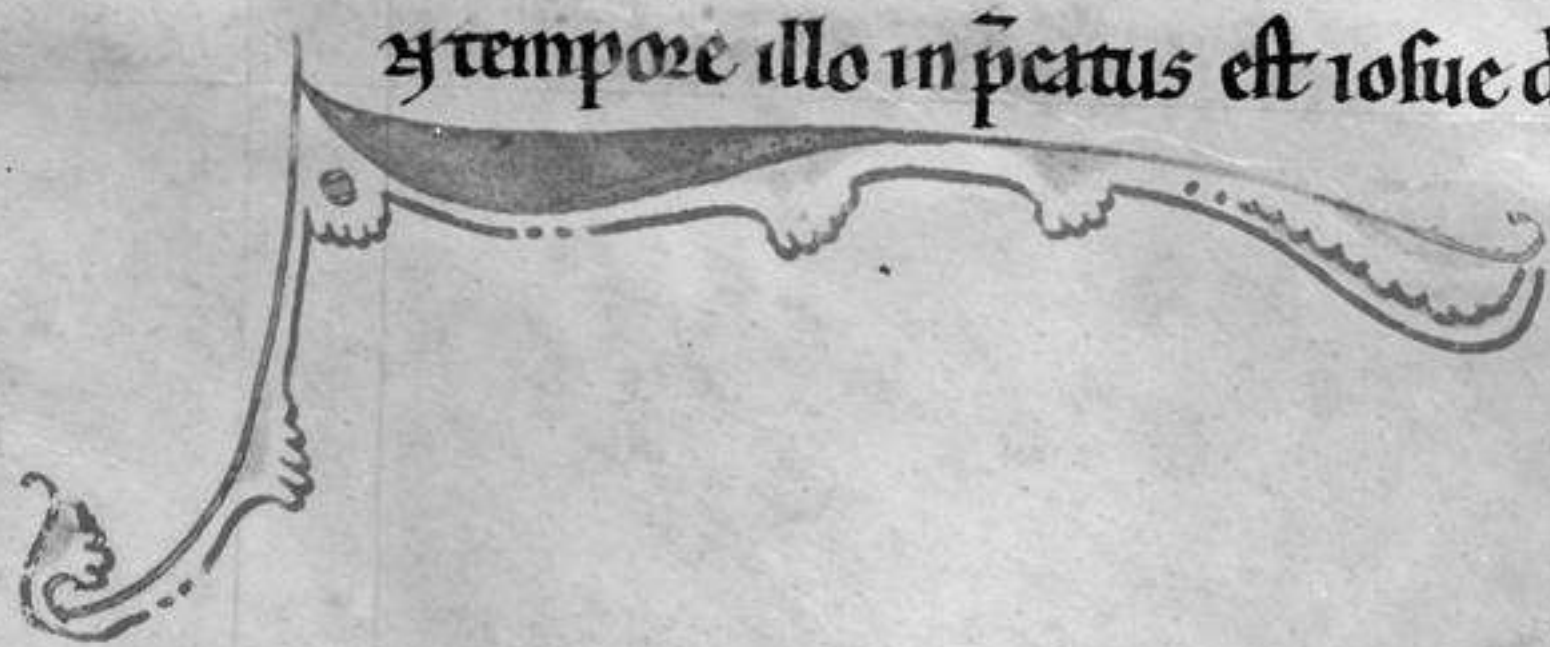 ꝝ tempore illo in p̄catus eſt ioſue d